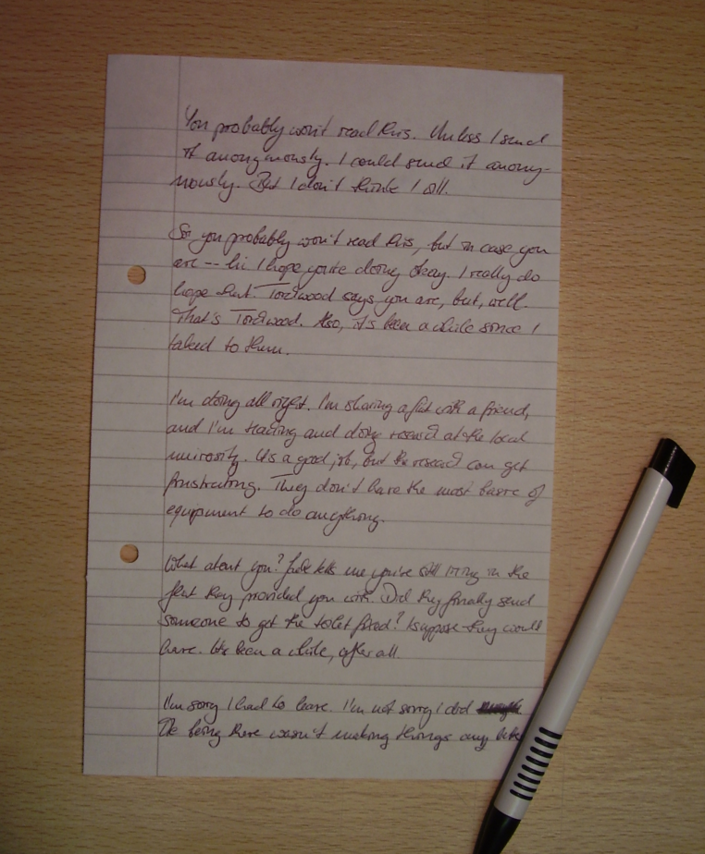 You probably won't read this. Unless I send
it anonymously. I could send it anony-
mously. But I don't think I will.
So you probably won't read this, but in case you
are -- hi. I hope you're doing okay. I really do
hope that. Torchwood says you are, but, well.
That's Torchwood. Also, it's been a while since I
talked to them.
I'm doing all right. I'm sharing a flat with a friend,
and I'm teaching and doing research at the local
university. It's a good job, but the research can get
frustrating. They don't have the most basic of
equipment to do anything.
What about you? Jack tells me you're still living in the
flat they provided you with. Did they finally send
someone to get the toilet fixed? I suppose they would
have. It's been a while, after all.
I'm sorry I had to leave. I'm not sorry I did
Me being there wasn't making things any